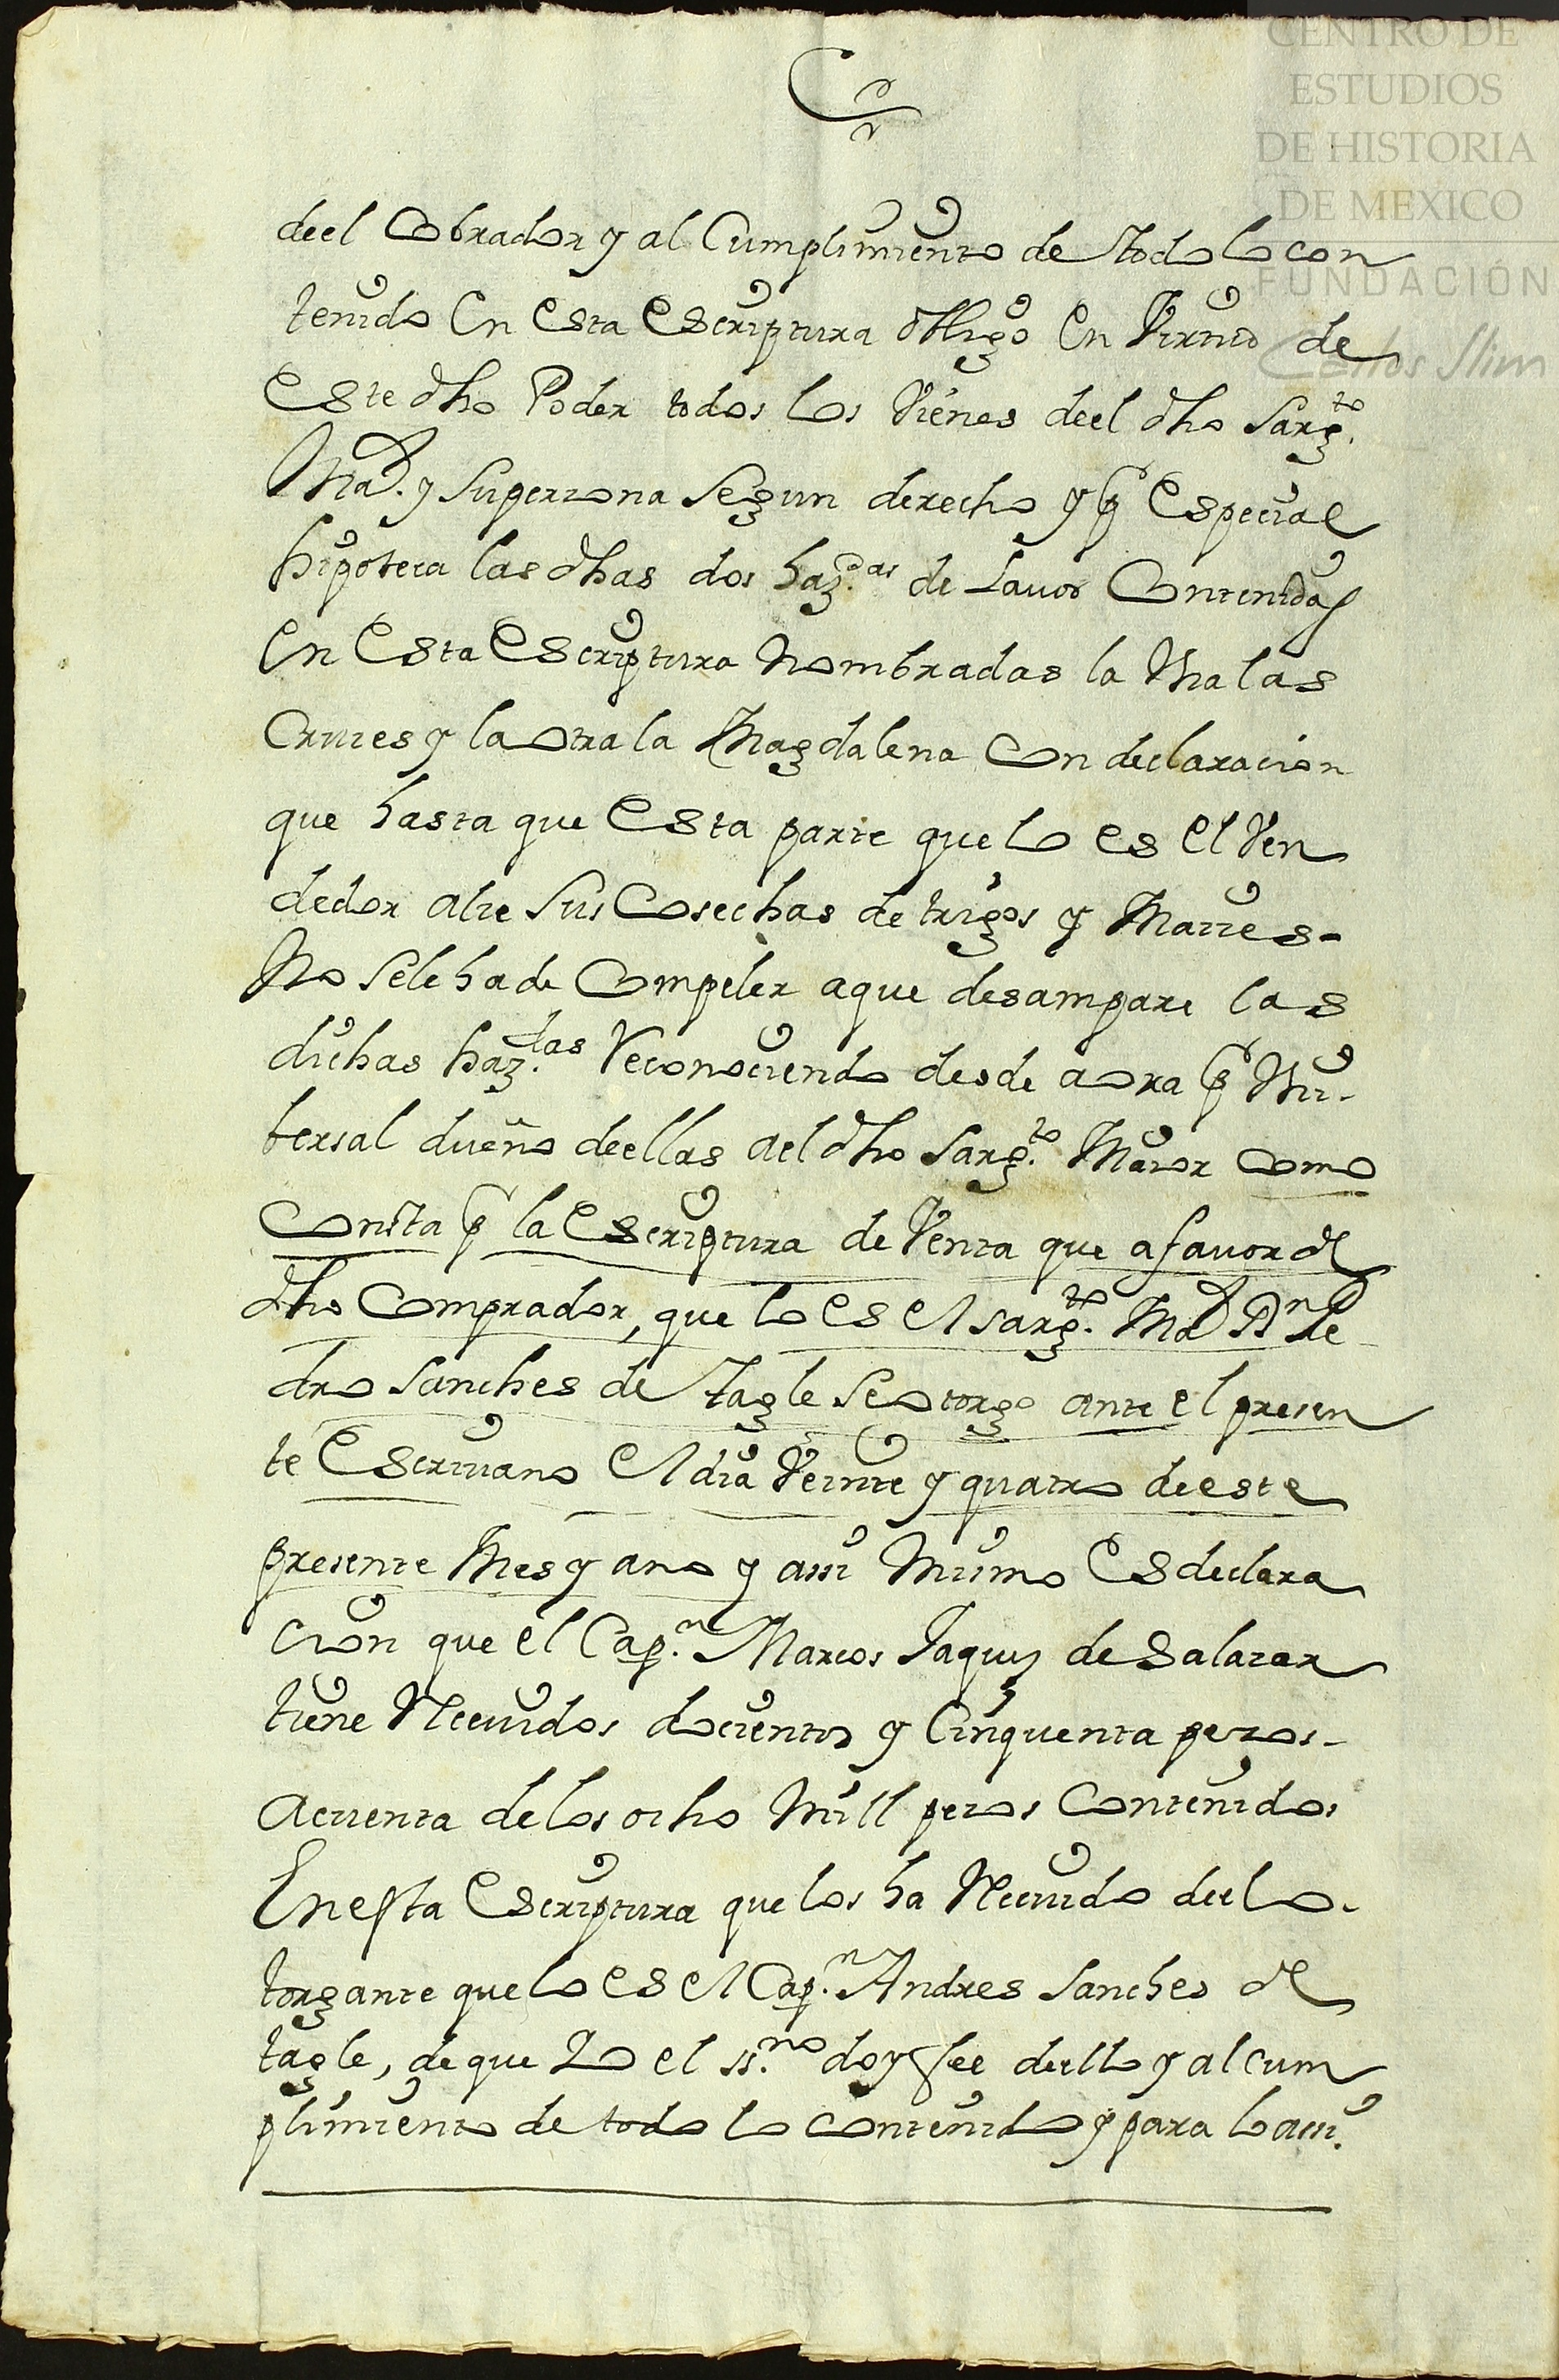 CENTRO DE
ESTUDIOS
DE HISTORIA
DE MEXICO
FUNDACIÓN
Carlos Slim
deel Cobrador y al Cumplimiento de todo lo con
tenido En Esta Escriptura obligo En Virtud de
Este dho Poder todos los Vienes deel dho Sargto
Mar. y Superzona Segun derecho y pr Especial
hipoteca las dhas dos hazdas de Lavor Contenidas
En Esta Escriptura Nombradas la Una las
Cruzes y la otra la Magdalena Con declarazion
que hasta que Esta parte que lo es El Ven
dedor alze Sus Cosechas de trigos y Maizes-
No Sele ha de Compeler a que desampare las
dichas hazdas Reconociendo desde aora pr Uni-
bersal dueño deellas ael dho Sargto Maior Como
Consta pr la Escriptura de Venta que afavor del
dho Comprador, que lo es El Sargto Mar Dn Pe
dro Sanches de Tagle Se otorgo ante el presen
te Escrivano El dia Veinte y quatro de este
presente Mes y año y assi Mismo Es declara
cion que el Capn Marcos Jaquez de Salazar
tiene Recividos docientos y Cinquenta pezos-
acuenta de los ocho Mill pezos Contenidos
En esta Escriptura que los ha Recivido deel o-
torgante que lo es El Capn Andres Sanches de
tagle, de que Yo el ssno doy fee deello y al cum
plimiento de todo lo Contenido y para lo assi